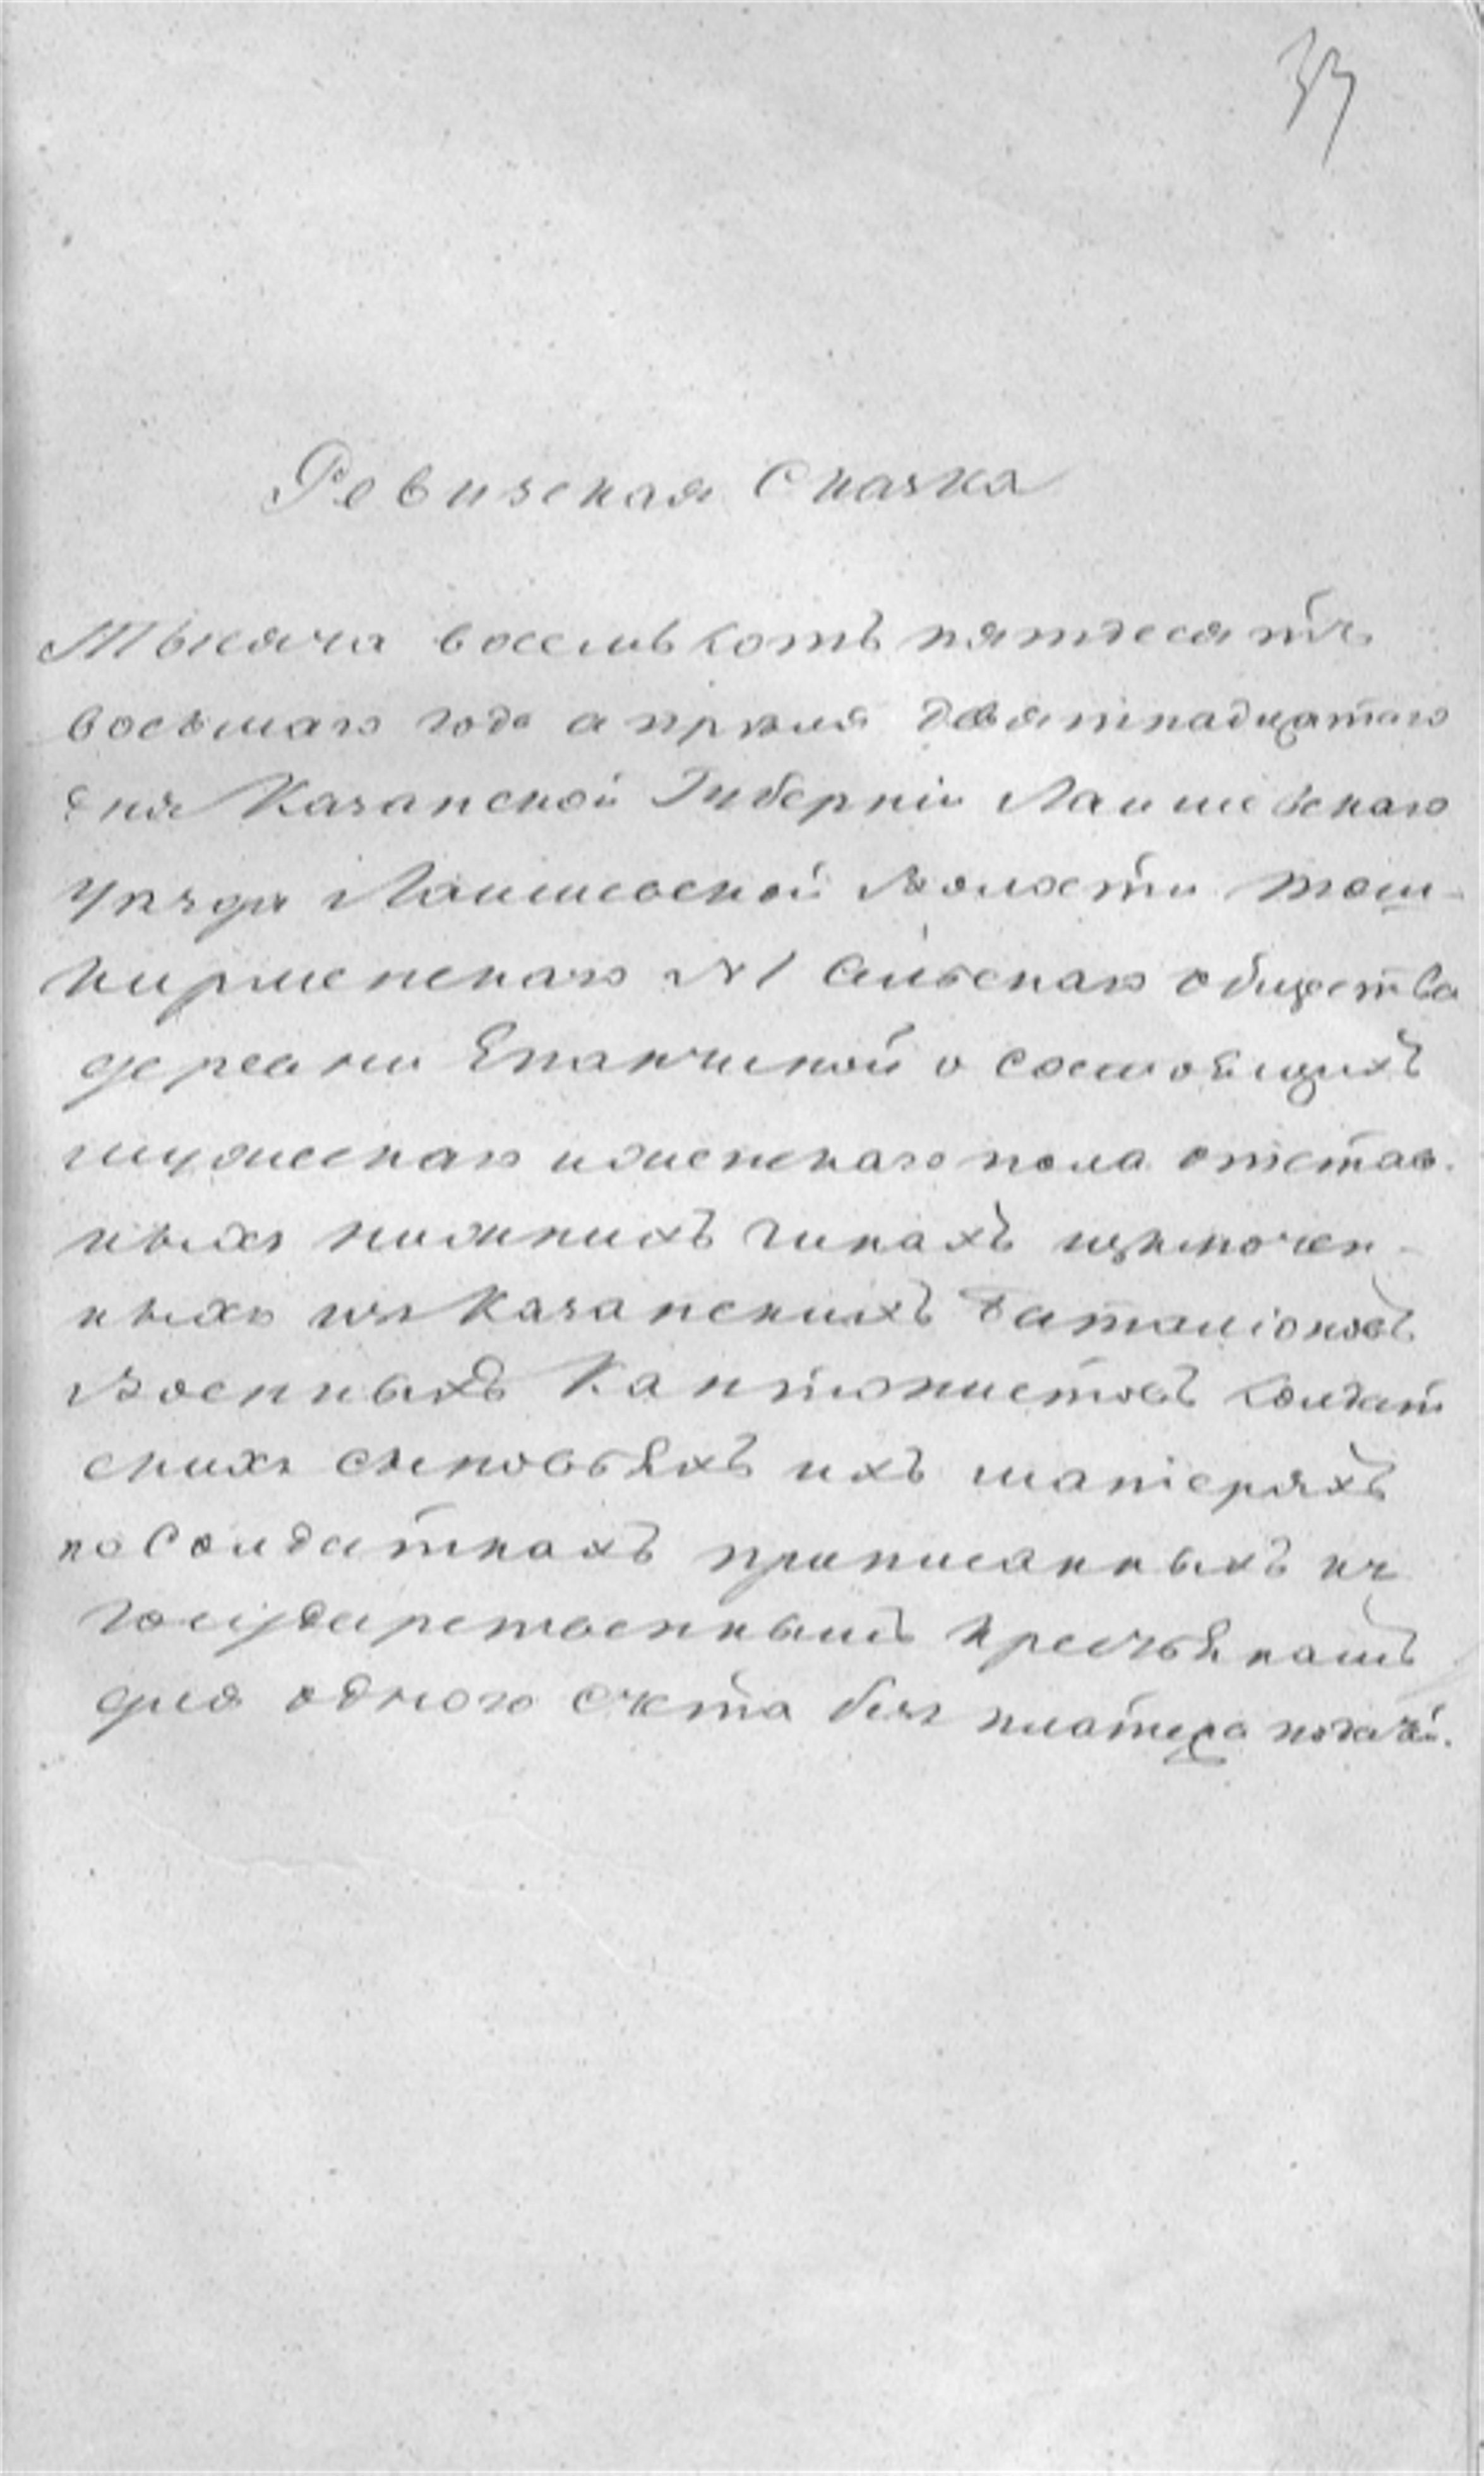 33
Ревизская Сказка
Тысяча восемьсотъ пятдесятъ
восьмаго года апреля девятнадцатаго
дня Казанской Губерніи Лаишевскаго
уезда Лаишевской волости таш-
кирменскаго №1 Сельскаго общества
деревни Епанчиной о состоящихъ
мужескаго и женскаго пола отстав.
ныхъ нижнихъ чинахъ исключен-
ныхъ изъ Казанскихъ Баталіоновъ
Военныхъ Кантонистовъ Солдат
скихъ сыновьяхъ ихъ матеряхъ
по Солдаткахъ приписанныхъ къ
государственнымъ крестьянамъ
для одного счета безъ платежа податей.